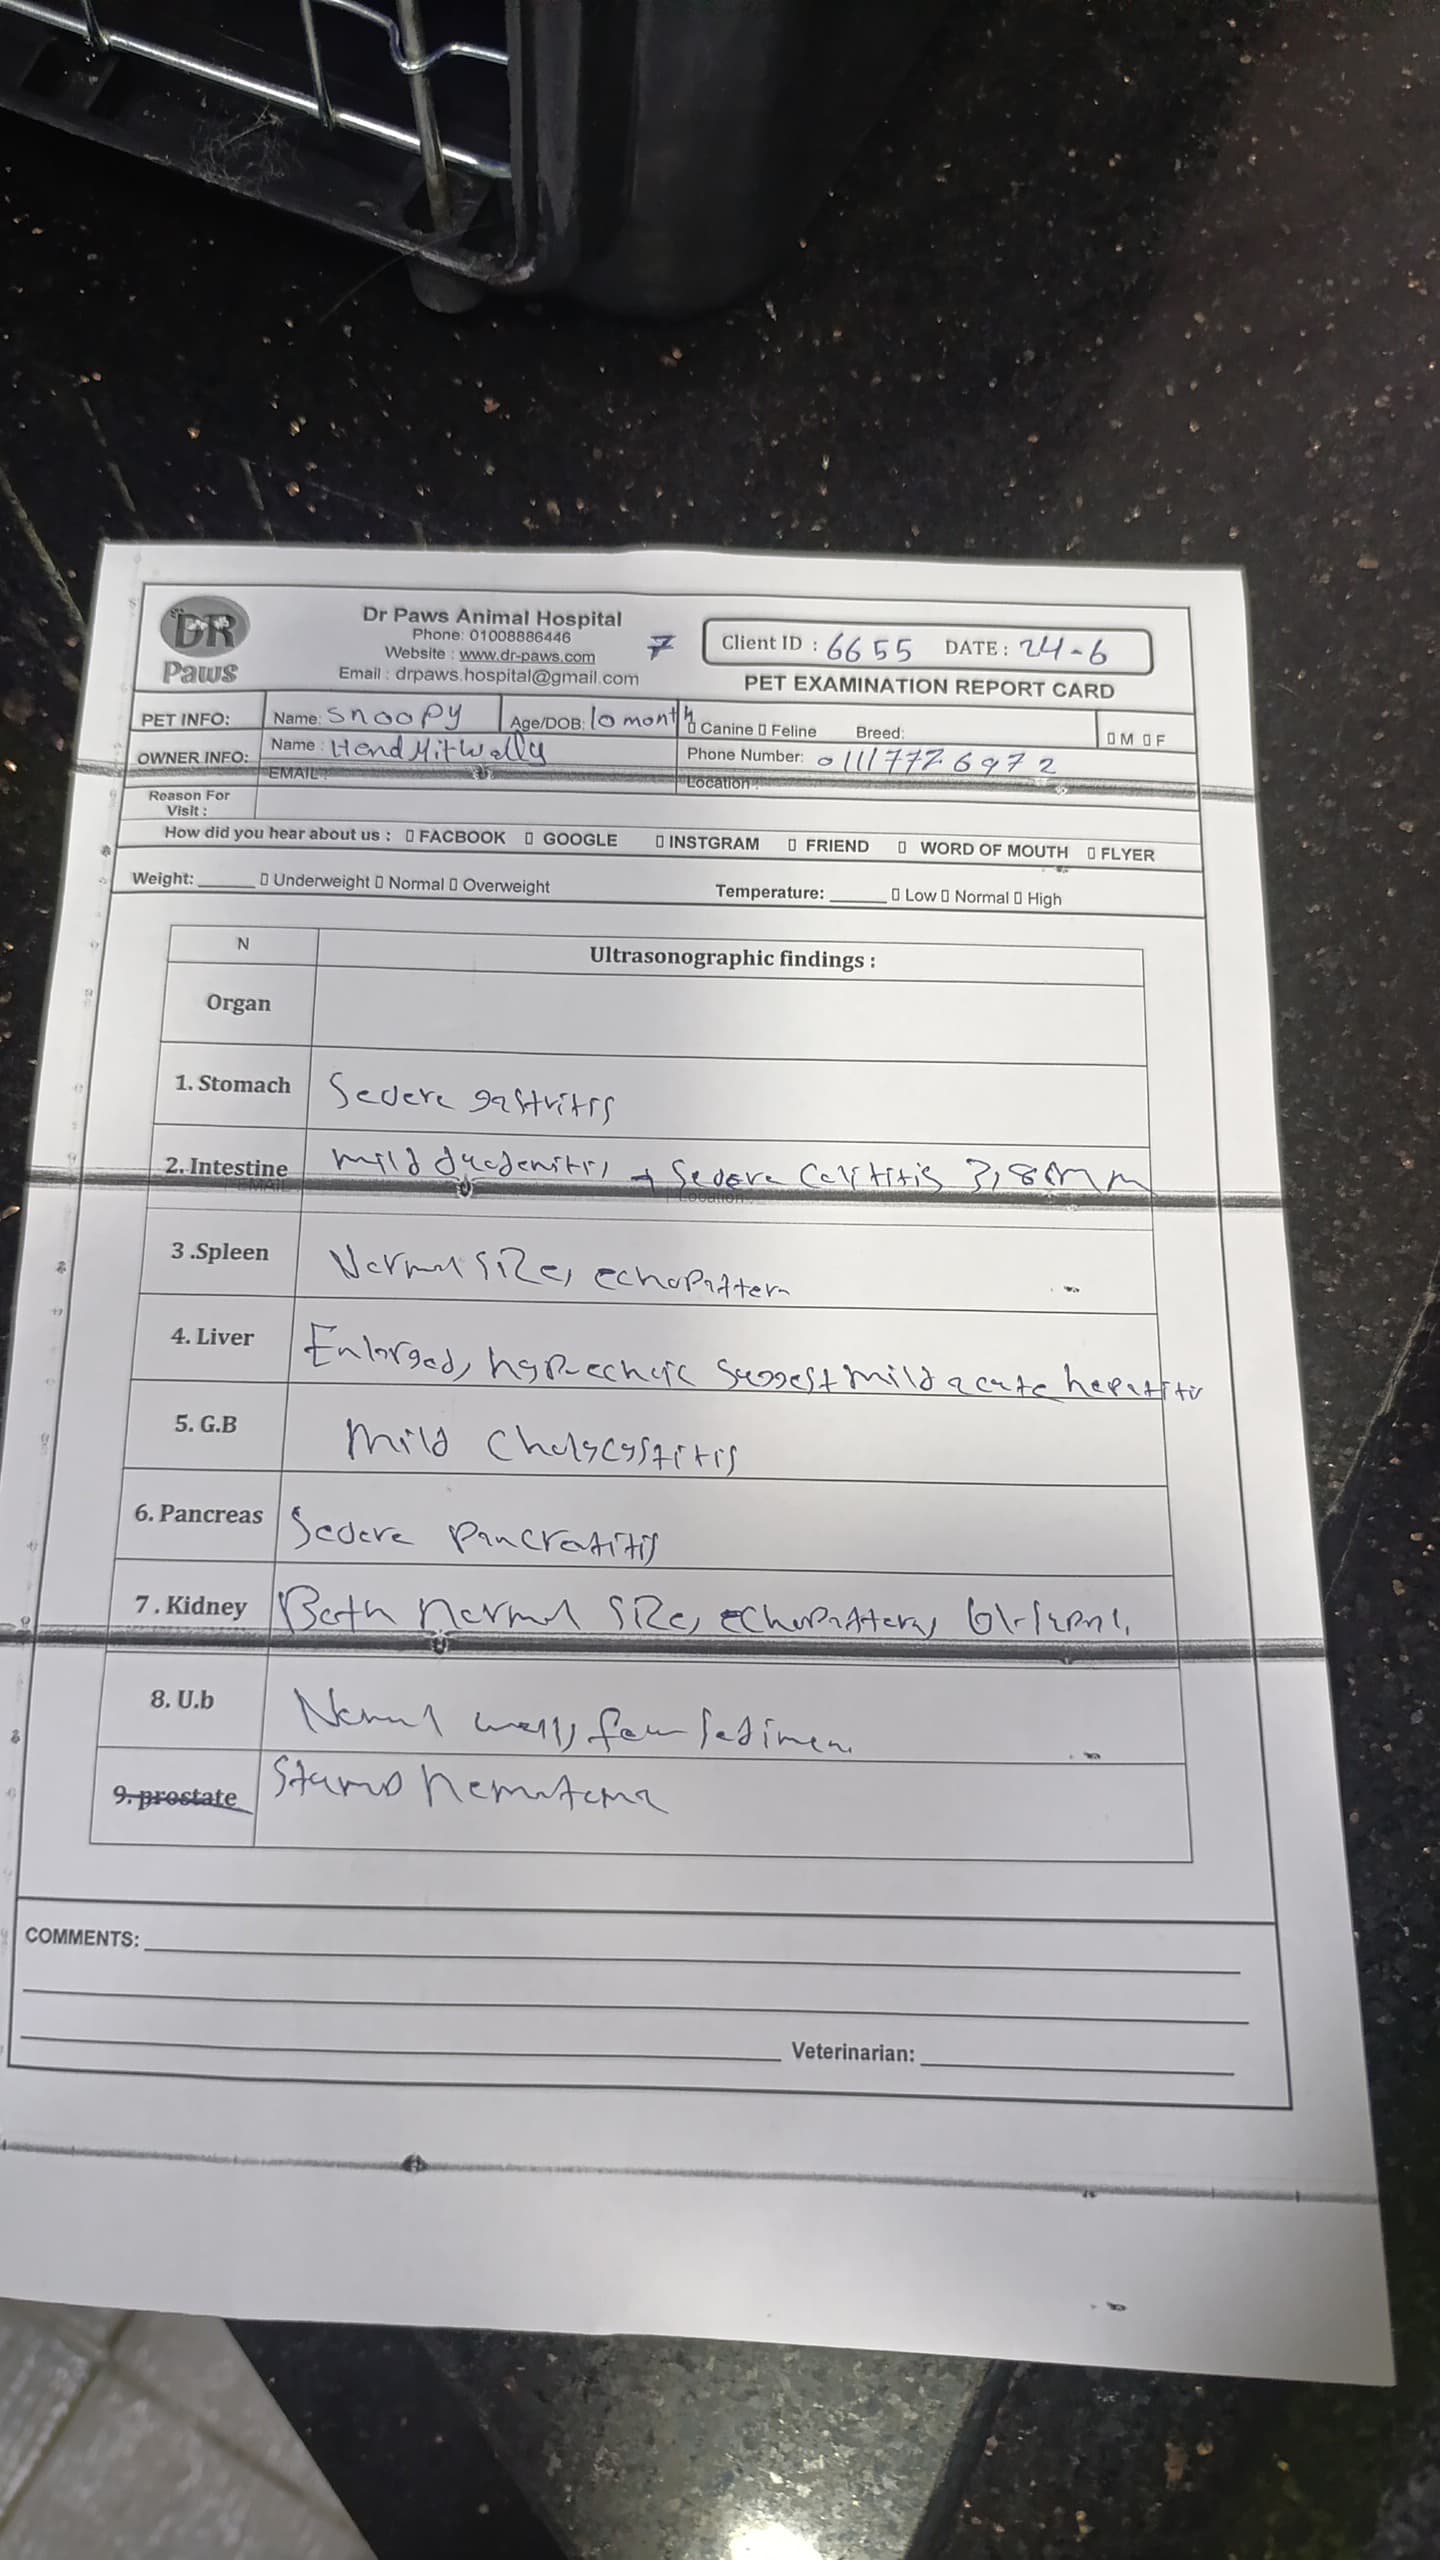 DR
Paws
Dr Paws Animal Hospital
Phone: 01008886446
Website : www.dr-paws.com
Email : drpaws.hospital@gmail.com
7
Client ID : 6655 DATE : 24-6
PET EXAMINATION REPORT CARD
PET INFO: Name: Snoopy Age/DOB: 10 month Canine Feline Breed: M F
OWNER INFO: Name : Hend Mitwally Phone Number: 01117776972
EMAIL : Location :
Reason For
Visit :
How did you hear about us : FACBOOK GOOGLE INSTGRAM FRIEND WORD OF MOUTH FLYER
Weight: ______ Underweight Normal Overweight Temperature: ______ Low Normal High
N Ultrasonographic findings :
Organ
1. Stomach Severe gastritis
2. Intestine mild duodenitis + Severe Colitis 3,8mm
EMAIL Location
3 .Spleen Normal size, echopattern
4. Liver Enlarged, hypoechoic suggest mild acute hepatitis
5. G.B mild Cholecystitis
6. Pancreas Severe pancreatitis
7 . Kidney Both normal size, echopattern,
8. U.b Normal wall, few sediment
9. prostate Stump hematoma
COMMENTS:
Veterinarian: